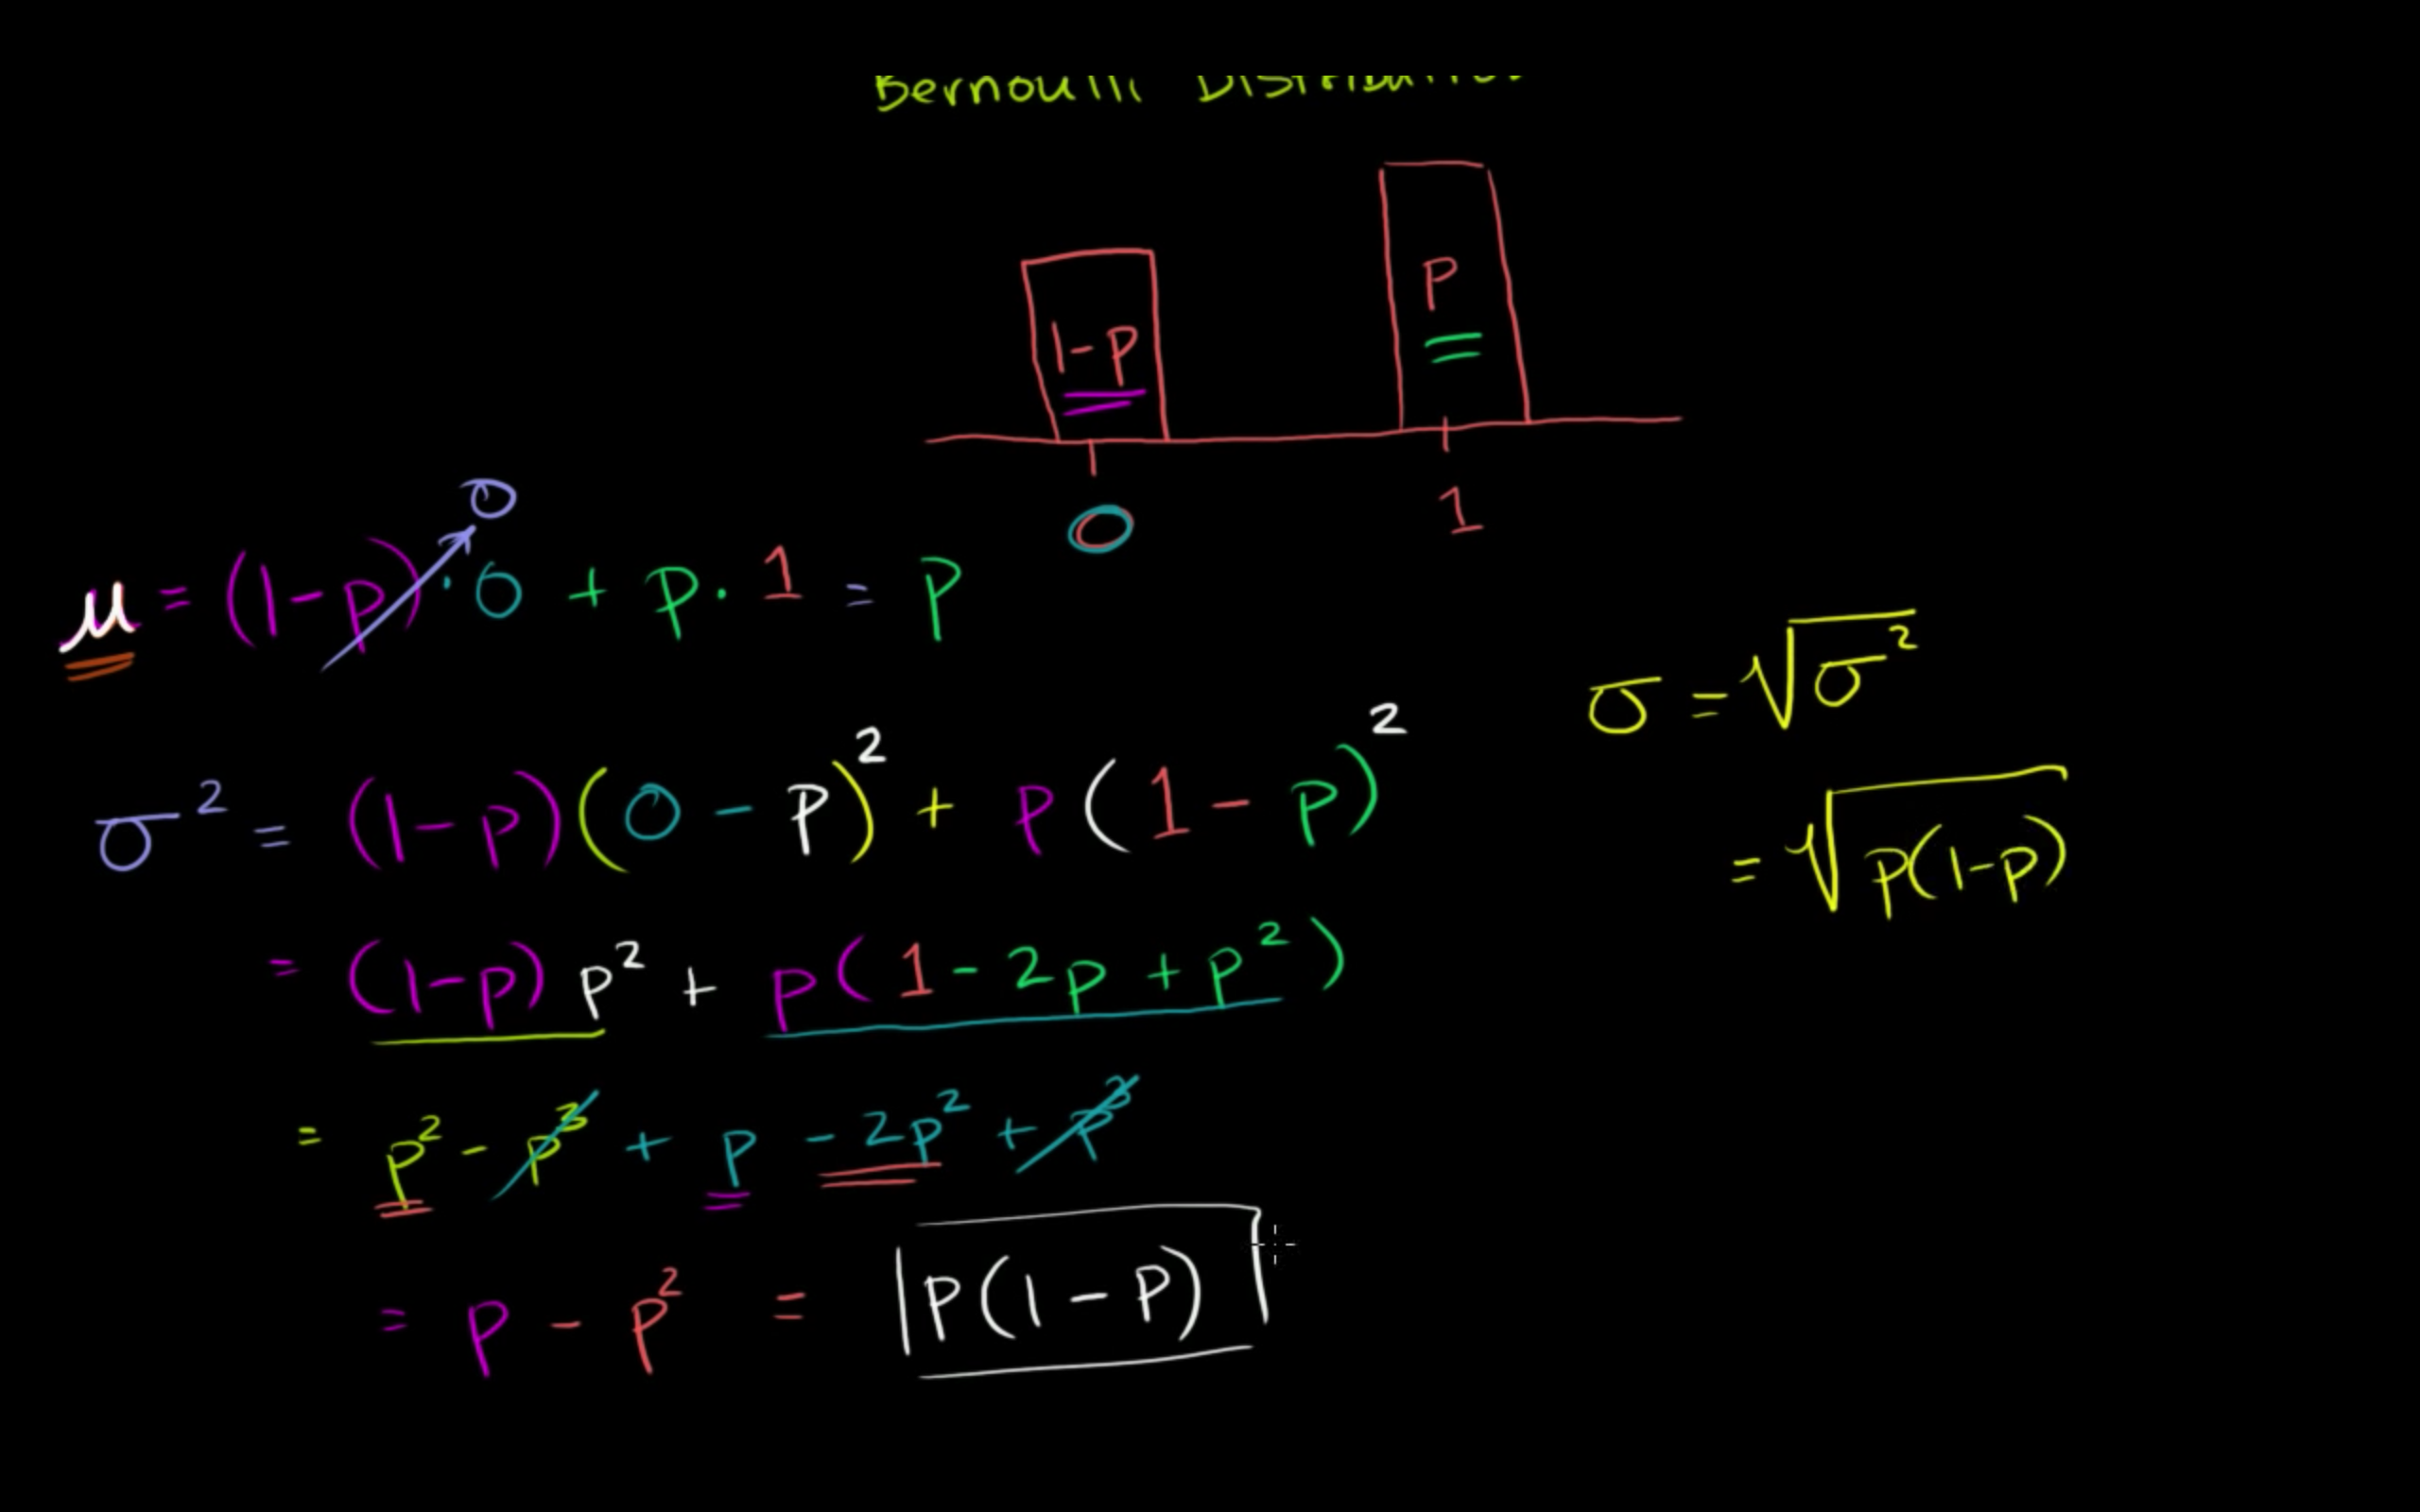 Bernoulli Distribution
1-p
p
0
1
0
μ = (1-p)·0 + p·1 = p
σ = √σ²
σ² = (1-p)(0-p)² + p(1-p)²
= √p(1-p)
= (1-p)p² + p(1-2p+p²)
= p² - p³ + p - 2p² + p³
= p - p² = p(1-p)